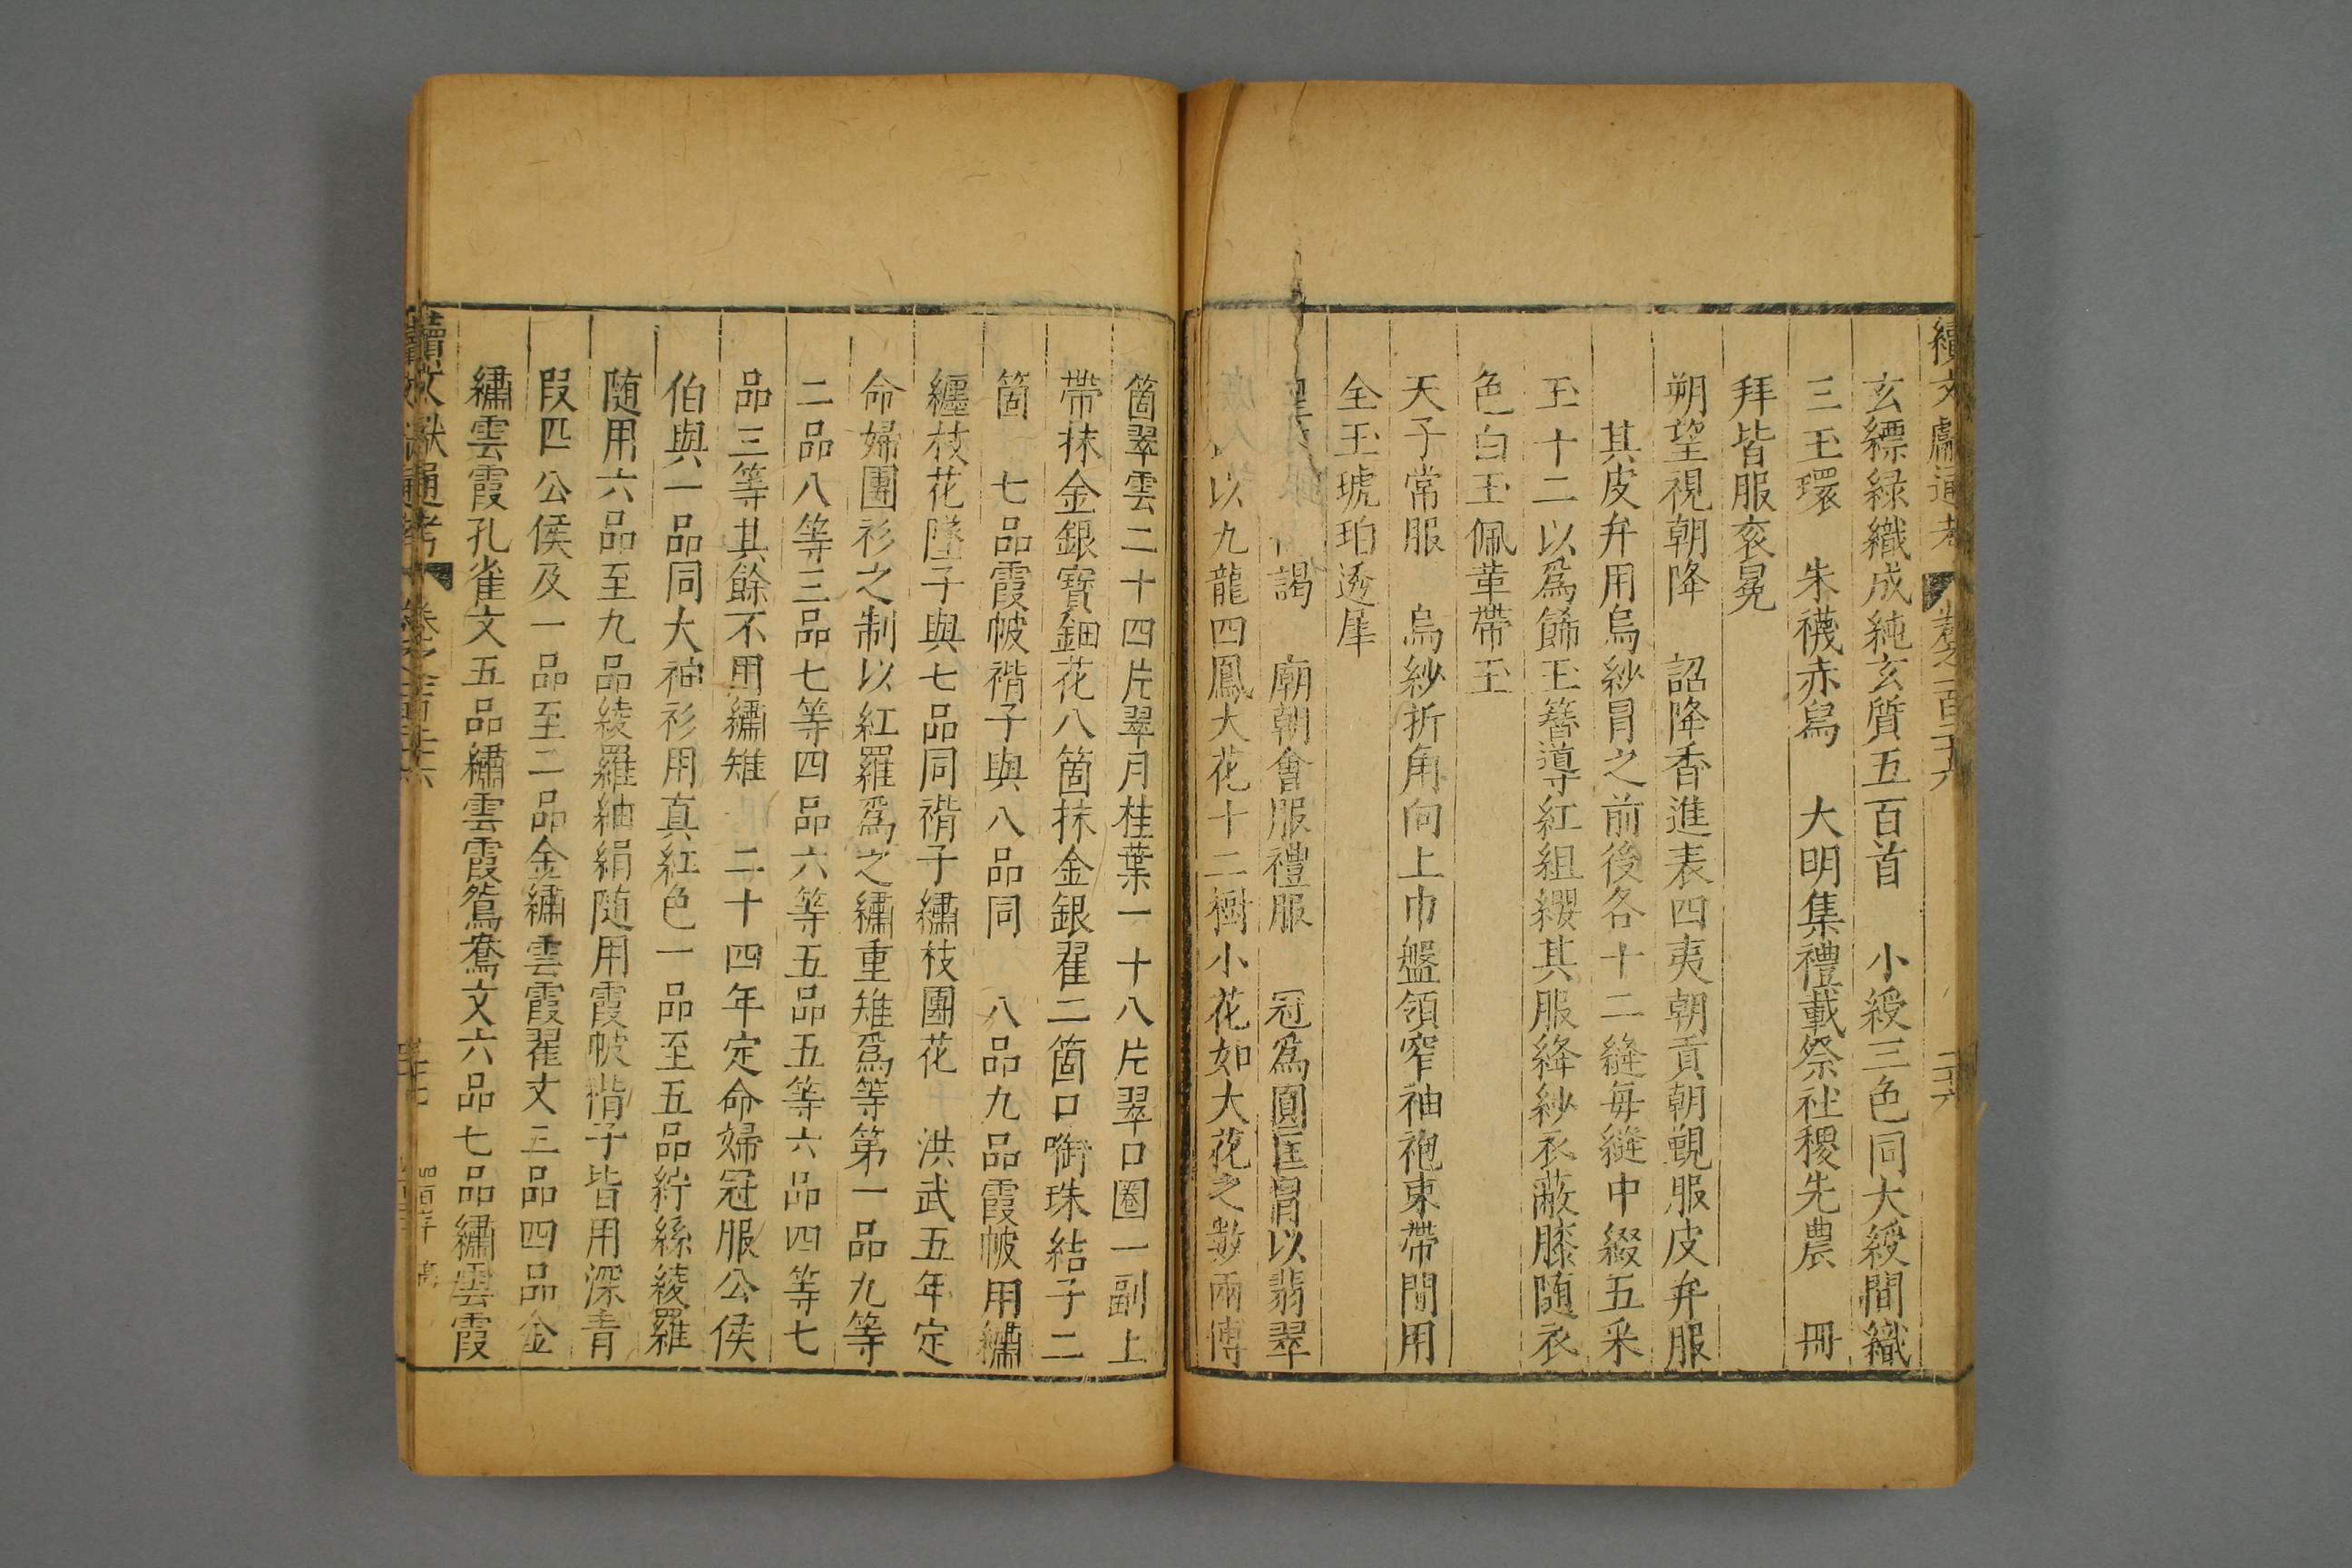 續文獻通考 卷之一百二十六 二十六
玄縹緑織成純玄質五百首 小綬三色同大綬間織
三玉環 朱襪赤舄 大明集禮載祭社稷先農 冊
拜皆服衮冕
朔望視朝降 詔降香進表四夷朝貢朝覲服皮弁服
其皮弁用烏紗冒之前後各十二縫每縫中綴五采
玉十二以爲飾玉簪導紅組纓其服絳紗衣蔽膝随衣
色白玉佩革帶玉
天子常服 烏紗折角向上巾盤領窄袖袍束帶間用
全玉琥珀透犀
謁 廟朝會服禮服 冠爲圓匡冐以翡翠
以九龍四鳳大花十二樹小花如大花之數兩博
箇翠雲二十四片翠月桂葉一十八片翠口圈一副上
帶抹金銀寶鈿花八箇抹金銀翟二箇口啣珠結子二
箇 七品霞帔褙子與八品同 八品九品霞帔用繡
纏枝花墜子與七品同褙子繡枝團花 洪武五年定
命婦團衫之制以紅羅爲之繡重雉爲等第一品九等
二品八等三品七等四品六等五品五等六品四等七
品三等其餘不用繡雉 二十四年定命婦冠服公侯
伯與一品同大袖衫用真紅色一品至五品紵絲綾羅
随用六品至九品綾羅紬絹随用霞帔褙子皆用深青
叚匹公侯及一品至二品金繡雲霞翟文三品四品金
繡雲霞孔雀文五品繡雲霞鴛鴦文六品七品繡雲霞
續文獻通考 卷之一百二十六